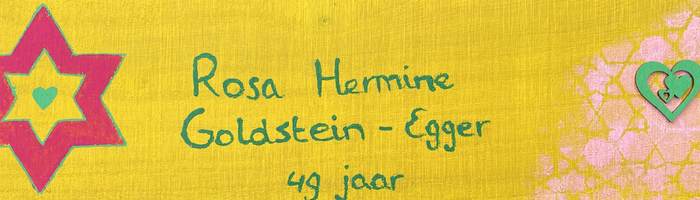 Rosa Hermine
Goldstein - Egger
49 jaar